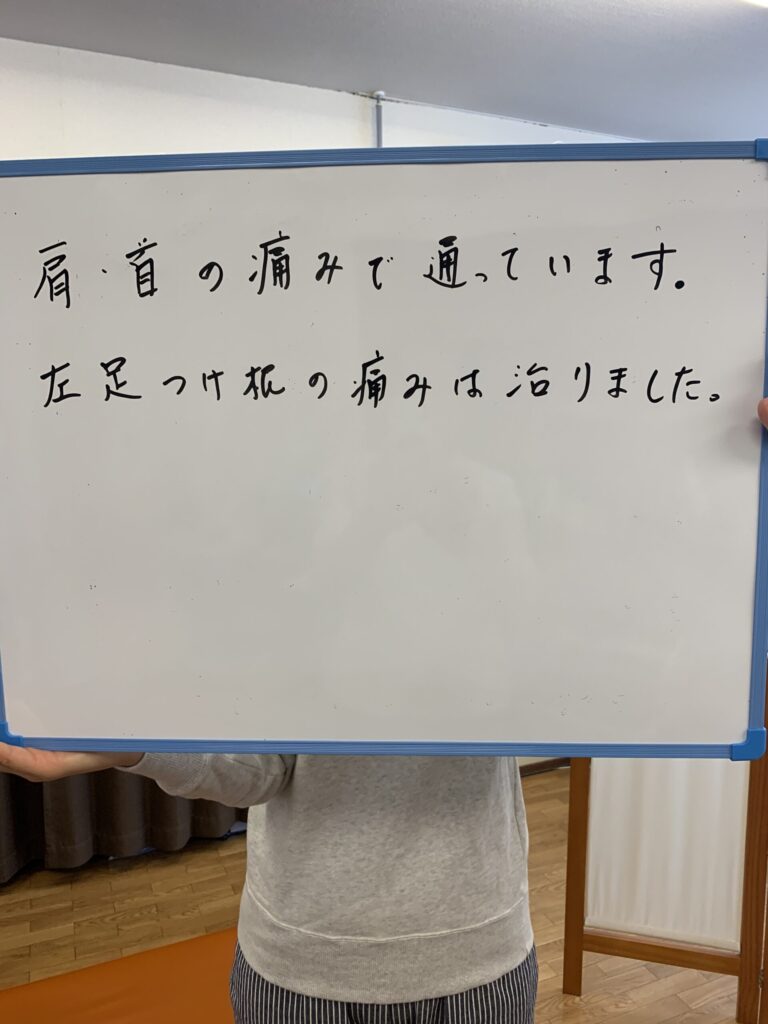 肩・首の痛みで通っています。
左足つけ根の痛みは治りました。